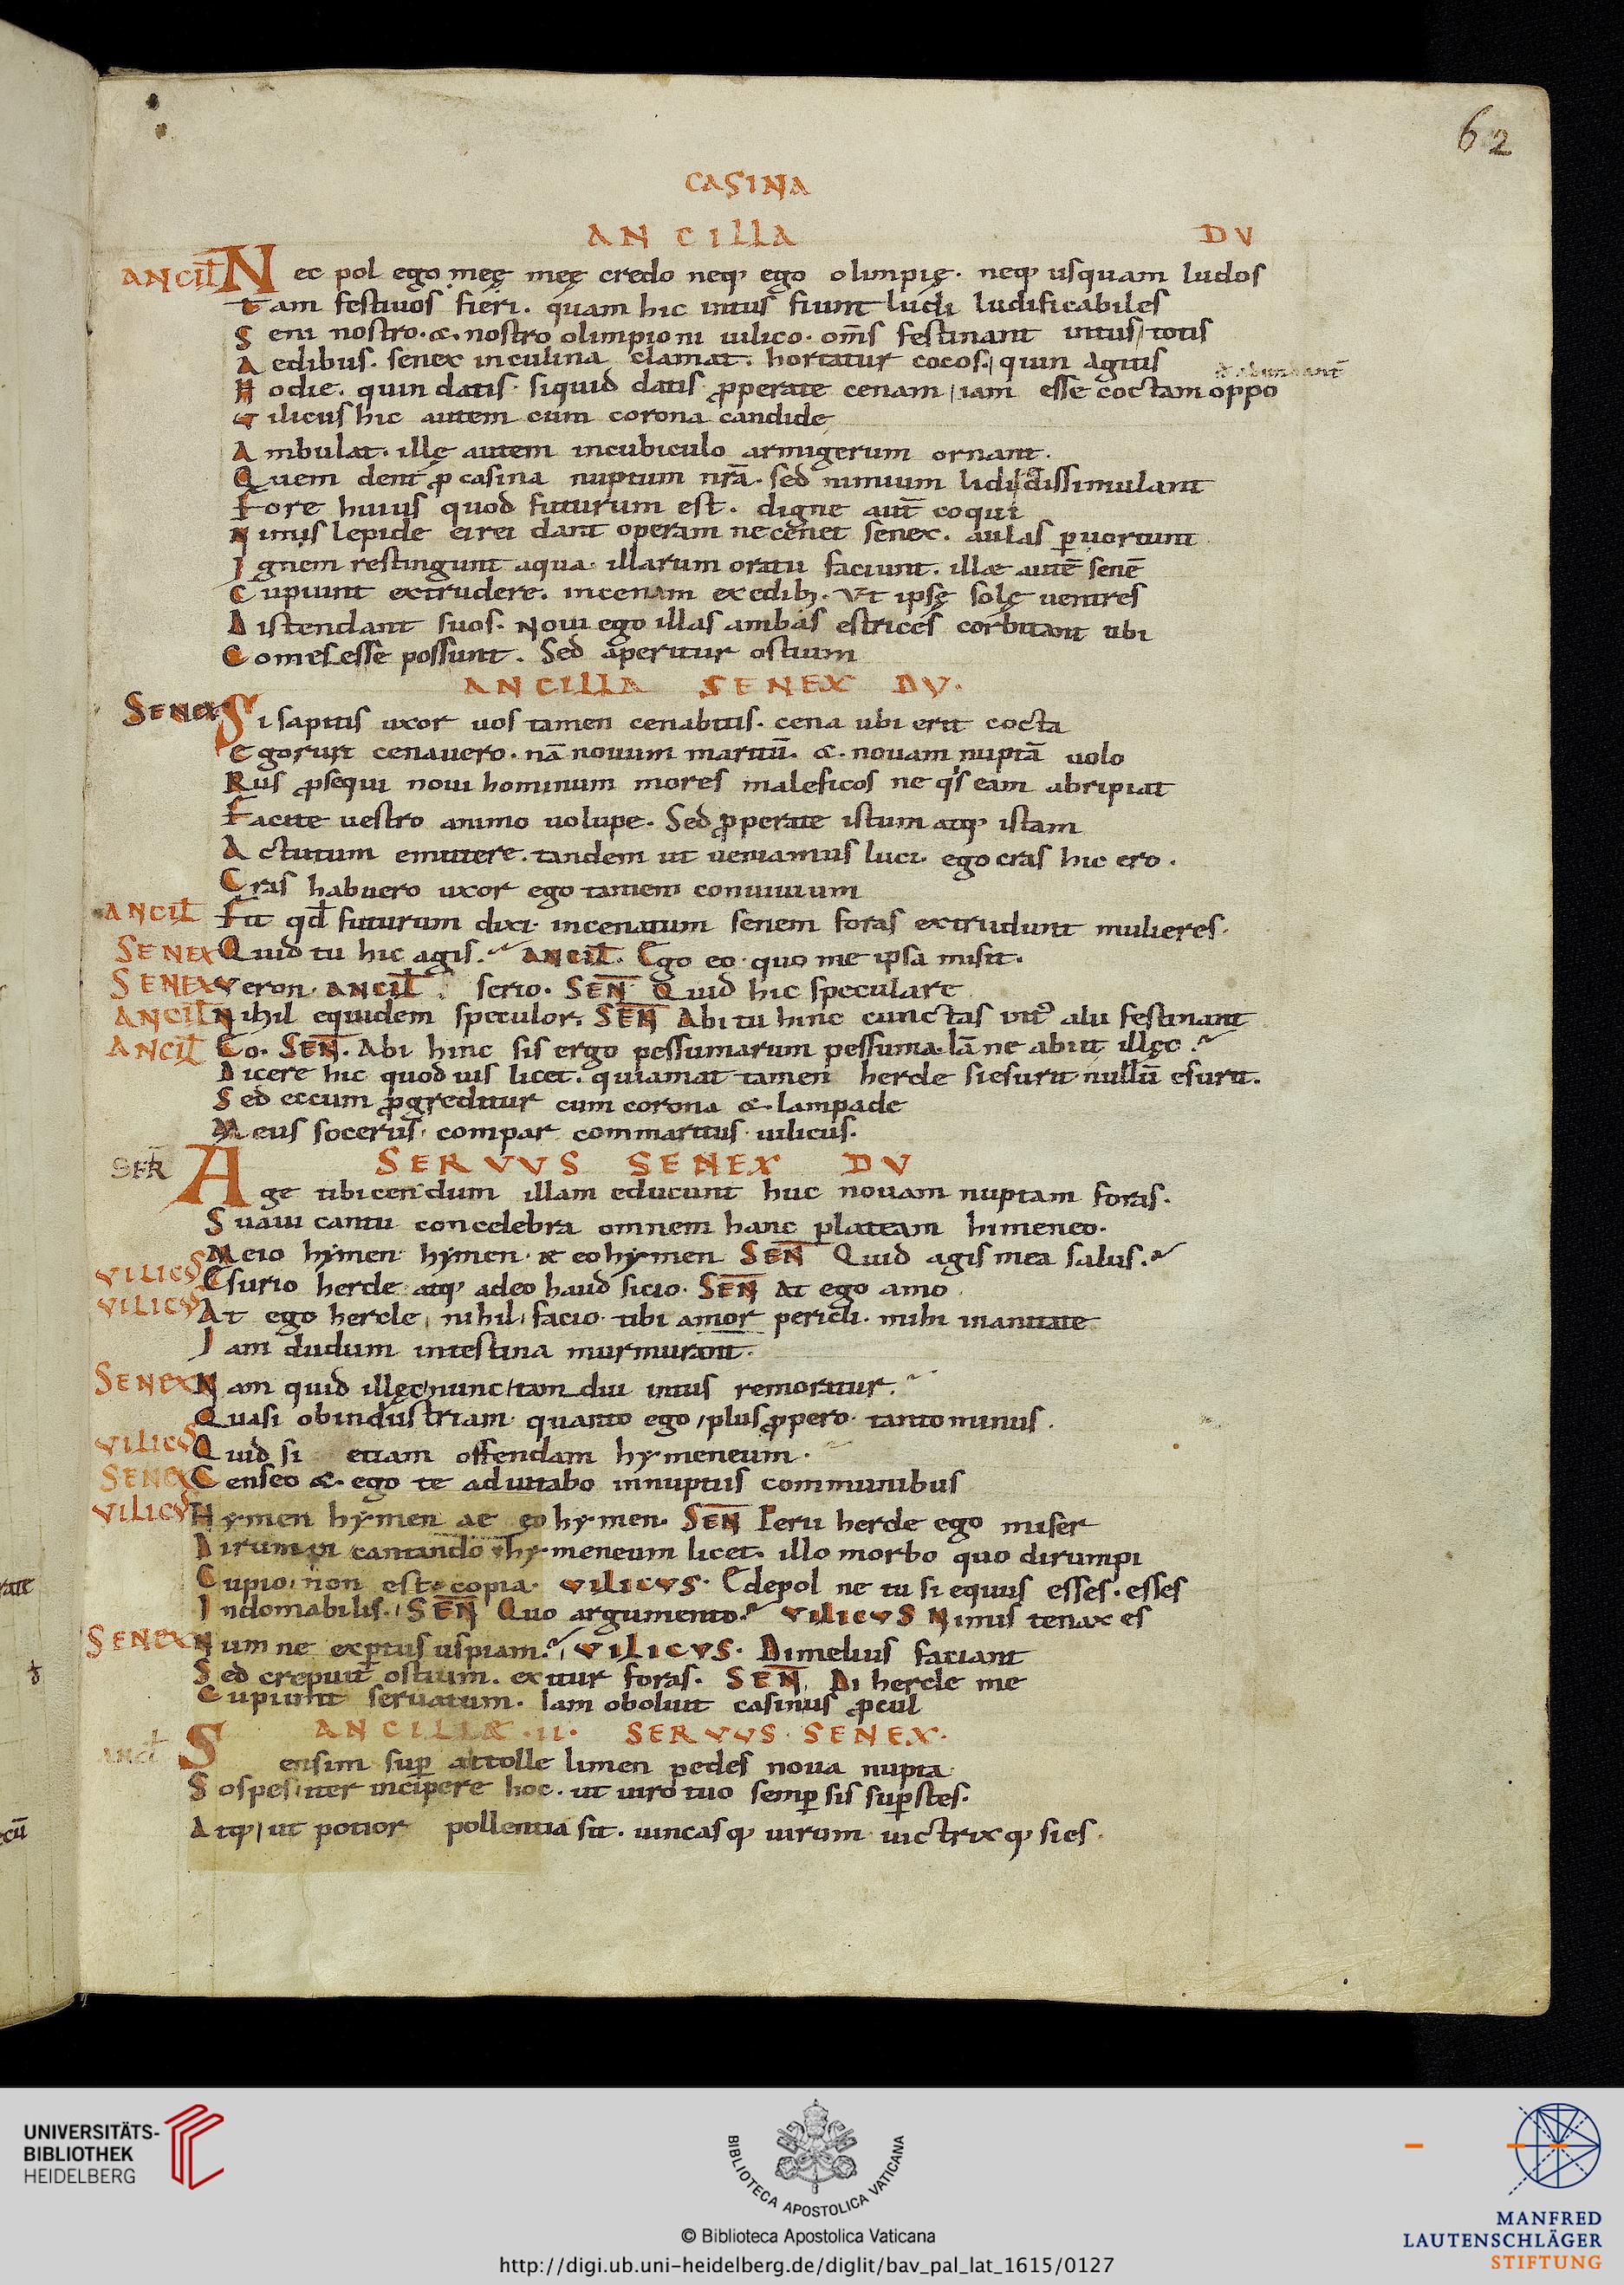 62
CASINA
ANCILLA DV
ANCIL̄ Nec pol ego męę męę credo neq; ego olimpię. neq; usquam ludos
Tam festiuos fieri. quam hic intus fiunt ludi ludificabiles
Seni nostro. &. nostro olimpioni uilico. om̄s festinant intus totis
Aedibus. senex inculina clamat. hortatur cocos. quin agitis
Hodie. quin datis siquid datis ꝓperate cenam iam esse coctam oppo
Vilicus hic autem cum corona candide
Ambulat. illę autem incubiculo armigerum ornant.
Quem dent ꝓ casina nuptum nr̄a. sed nimium dissimulant
Fore huius quod futurum est. digne aut̄ coqui
Nimis lepide ei rei dant operam ne cenet senex. aulas ꝑuortunt
Ignem restingunt aqua. illarum oratu faciunt. illae autē senē
Cupiunt extrudere. incenam exedib;. Vt ipsę solę uentres
Distendant suos. Noui ego illas ambas estrices corbitant tibi
Comesesse possunt. Sed aperitur ostium
ANCILLA SENEX DV.
SENEX Si sapitis uxor uos tamen cenabitis. cena ubi erit cocta
Egoruri cenauero. nā nouum maritū. &. nouam nuptā uolo
Rus ꝓsequi noui hominum mores maleficos ne qs eam abripiat
Facite uestro animo uolupe. Sed ꝓperate istum atq; istam
Actutum emittere. tandem ut ueniamus luci. ego cras hic ero.
Cras habuero uxor ego tamem conuiuium
ANCIL̄ Fit qd̄ futurum dixi. incenatum senem foras extrudunt mulieres.
SENEX Quid tu hic agis. ANCIL̄. Ego eo quo me ipsa misit.
SENEX Veron. ANCIL̄. serio. SEN̄ Quid hic speculare
ANCIL̄ Nihil equidem speculor. SEN̄ Abi tu hinc cunctas int alii festinant
ANCIL̄ Eo. SEN̄. Abi hinc sis ergo pessumarum pessuma. Iā ne abiit illęc.
Dicere hic quod uis licet. quiamat tamen hercle siesurit nullū esurit.
Sed eccum ꝓgreditur cum corona &. lampade
Meus socerus. compar commaritus uilicus.
SERVVS SENEX DV
SER̄ Age tibicen dum illam educunt huc nouam nuptam foras.
Suaui cantu concelebra omnem hanc plateam himeneo.
Meio hymen hymen. ae eo hymen SEN̄ Quid agis mea salus.
VILICVS Esurio hercle atq; adeo haud sicio. SEN̄ At ego amo
VILICVS At ego hercle nihil facio. tibi amor pericli. mihi inanitate
Iam dudum intestina murmurant.
SENEX Nam quid illęc nunc tam diu intus remoratur.
Quasi obindustriam quanto ego plus ꝓpero tanto minus.
VILICVS Quid si etiam offendam hymeneum.
SENEX Censeo &. ego te adiutabo innuptiis communibus
VILICVS Hymen hymen ae eo hymen. SEN̄ Perii hercle ego miser
Dirumpi cantando hymeneum licet. illo morbo quo dirumpi
Cupio. non est copia. VILICVS. Edepol ne tu si equus esses. esses
Indomabilis. SEN̄ Quo argumento. VILICVS Nimis tenax es
SENEX Num ne exꝑtus uspiam. VILICVS. Dimelius faciant
Sed crepuit ostium. exitur foras. SEN̄. Di hercle me
Cupiunt seruatum. Iam oboluit casinus ꝓcul
ANCILLAE .II. SERVVS SENEX.
ANCL̄ Sensim suꝑ attolle limen pedes noua nupta
Sospes iter incipere hoc. ut uiro tuo semꝑ sis suꝑstes.
Atq; ut potior pollentia sit. uincasq; uirum uictrixq; sies.
UNIVERSITÄTS-
BIBLIOTHEK
HEIDELBERG
BIBLIOTECA APOSTOLICA VATICANA
© Biblioteca Apostolica Vaticana
http://digi.ub.uni-heidelberg.de/diglit/bav_pal_lat_1615/0127
MANFRED
LAUTENSCHLÄGER
STIFTUNG